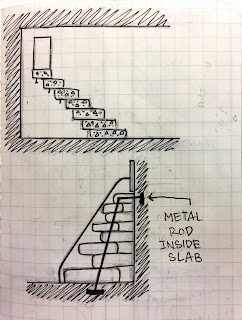 METAL
ROD
INSIDE
SLAB